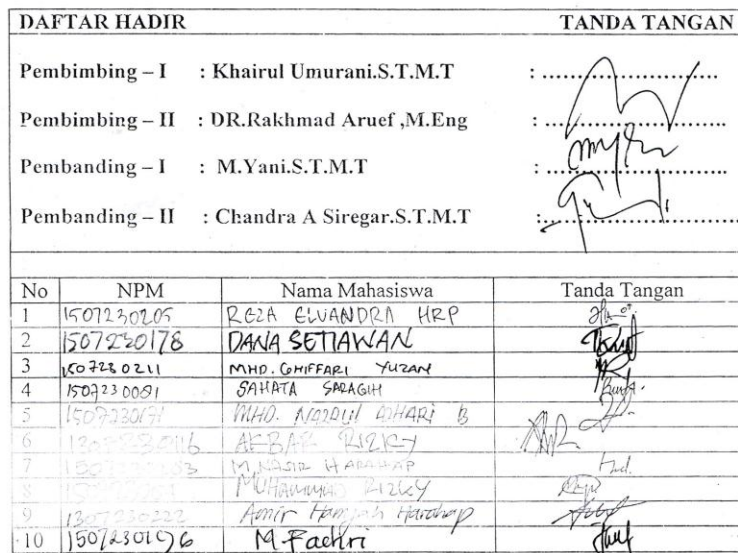 DAFTAR HADIR TANDA TANGAN
Pembimbing – I : Khairul Umurani.S.T.M.T : ..............................
Pembimbing – II : DR.Rakhmad Aruef ,M.Eng : ..............................
Pembanding – I : M.Yani.S.T.M.T : ..............................
Pembanding – II : Chandra A Siregar.S.T.M.T :..............................
No NPM Nama Mahasiswa Tanda Tangan
1 1507230205 REZA ELVANDRA HRP
2 1507230178 DANA SETIAWAN
3 1507230211 MHD. GHIFFARI YUZAN
4 1507230081 SAHATA SARAGIH
5 1507230171 MHD. AZHARI B
6 AKBAR RIZKY
7 M.NASIR HARAHAP
8 MUHAMMAD RIZKY
9 1307230222 Amir Hamjah Harahap
10 1507230196 M.Fachri